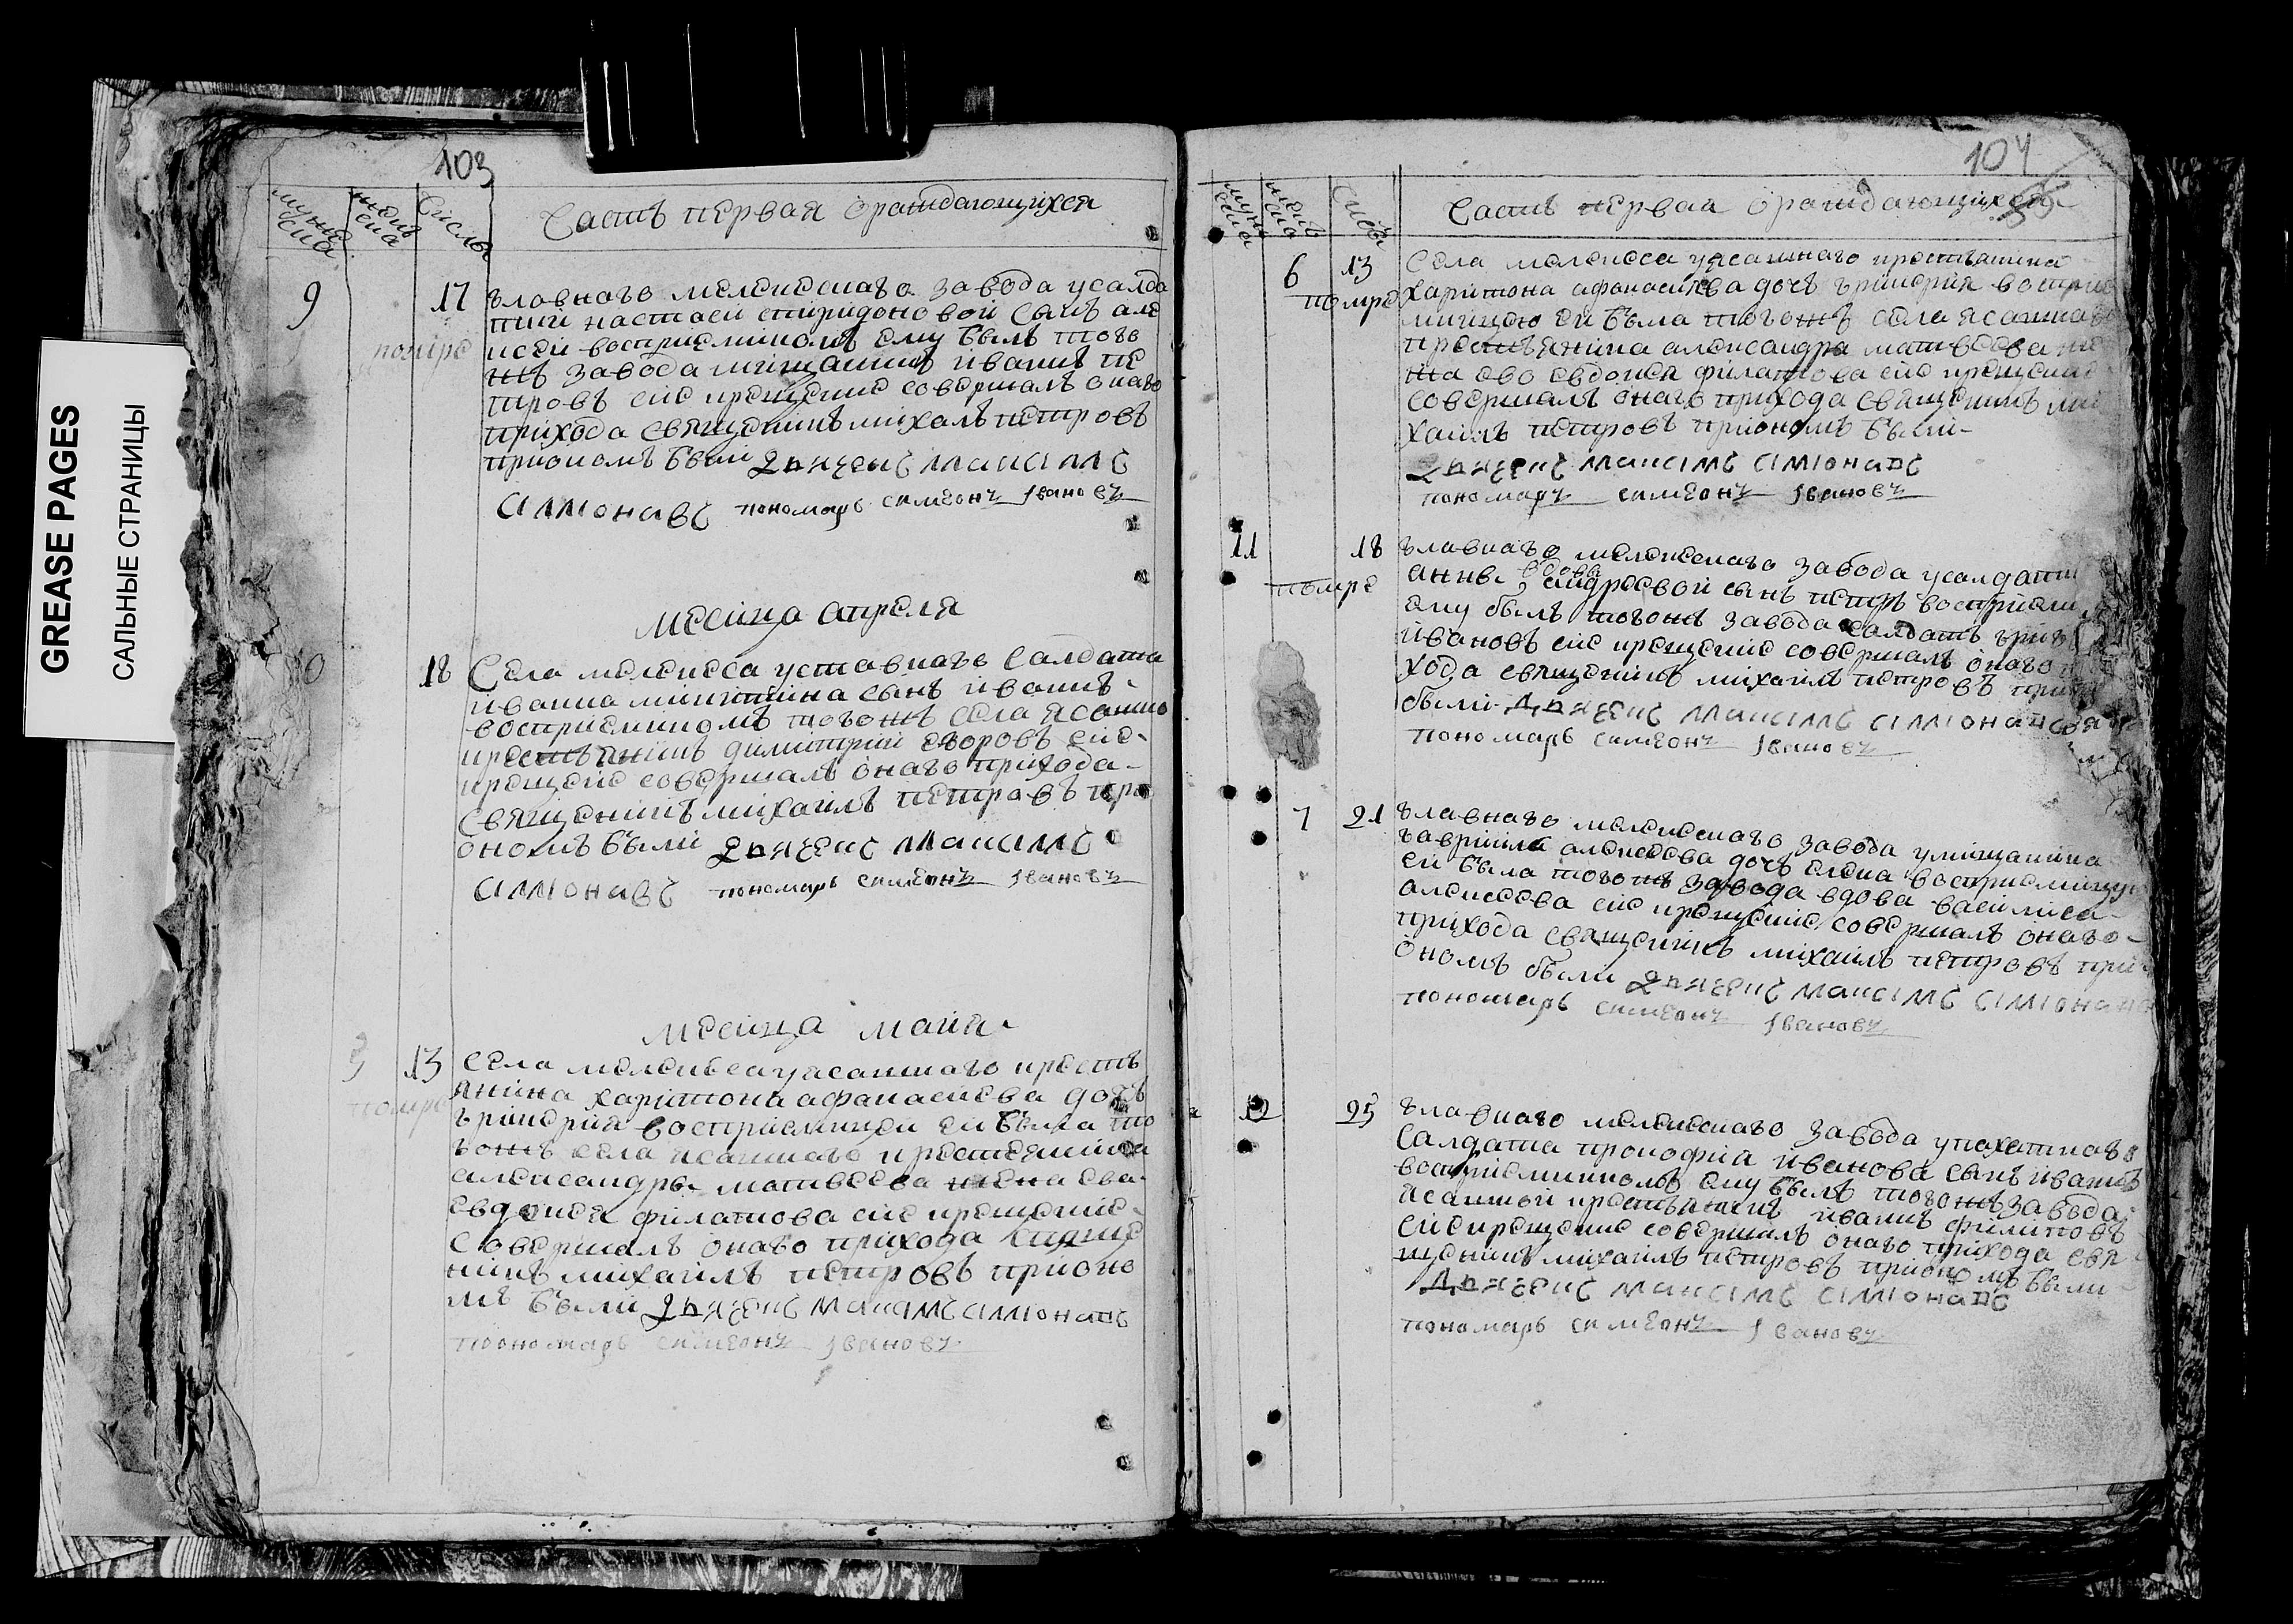 GREASE PAGES
САЛЬНЫЕ СТРАНИЦЫ
103
мужеска
женска
Числы
Часть первая ораждающихся
9
17
помре
главнаго мелекескаго завода усалда
тки настаси спиридоновой сынъ але
ксей восприемникомъ ему былъ того
жъ завода мещанинъ иванъ пе
тровъ сие крещение совершалъ онаго
прихода священникъ михаилъ петровъ
приономъ были дьячекъ максимъ
симионавъ пономарь симеонъ Ивановъ
месяца апреля
10
18
Села мелекеса уставнаго салдата
ивана никитина сынъ иванъ
восприемникомъ тогожъ села ясашно
крестьянинъ димитрий егоровъ сие
крещение совершалъ онаго прихода
священникъ михаилъ петровъ при
ономъ были дьячекъ максимъ
симионавъ пономарь симеонъ Ивановъ
месяца майя
5
13
помре
села мелекеса уясашнаго кресть
янина харитона афанасиева дочь
гликерия восприемница ей была то
гожъ села ясашнаго крестьянина
александра матвеева жена ево
евдокия филатова сие крещение
совершалъ онаго прихода священ
никъ михаилъ петровъ приано
мъ были дьячекъ максимъ симионавъ
пономарь симеонъ Ивановъ
104
мужеска
женска
Числы
Часть первая ораждающихся
6
13
помре
Села мелекеса уясашнаго крестьянина
харитона афанасиева дочь гликерия восприе
мницею ей была тогожъ села ясашнаго
крестьянина александра матвеева же
на ево евдокия филатова сие крещение
совершалъ онаго прихода священникъ ми
хаилъ петровъ приономъ были
дьячекъ максимъ симионавъ
пономарь симеонъ Ивановъ
11
18
помре
главнаго мелекескаго завода усалдатки
анны вдовы андреевой сынъ петръ восприемн
ему былъ тогожъ завода салдатъ григ
ивановъ сие крещение совершалъ онаго п
хода священникъ михаилъ петровъ при
были дьячекъ максимъ симионавъ
пономарь симеонъ Ивановъ
7
21
главнаго мелекескаго завода умещанина
гаврила алексеева дочь елена восприемницею
ей была тогожъ завода вдова василиса
алексеева сие крещение совершалъ онаго
прихода священникъ михаилъ петровъ при
ономъ были дьячекъ максимъ симионавъ
пономарь симеонъ Ивановъ
12
25
главнаго мелекескаго завода упахатнаго
салдата прокофия иванова сынъ иванъ
восприемникомъ ему былъ тогожъ завода
ясашной крестьянинъ иванъ филиповъ
сие крещение совершалъ онаго прихода свя
щенникъ михаилъ петровъ приономъ были
дьячекъ максимъ симионавъ
пономарь симеонъ Ивановъ